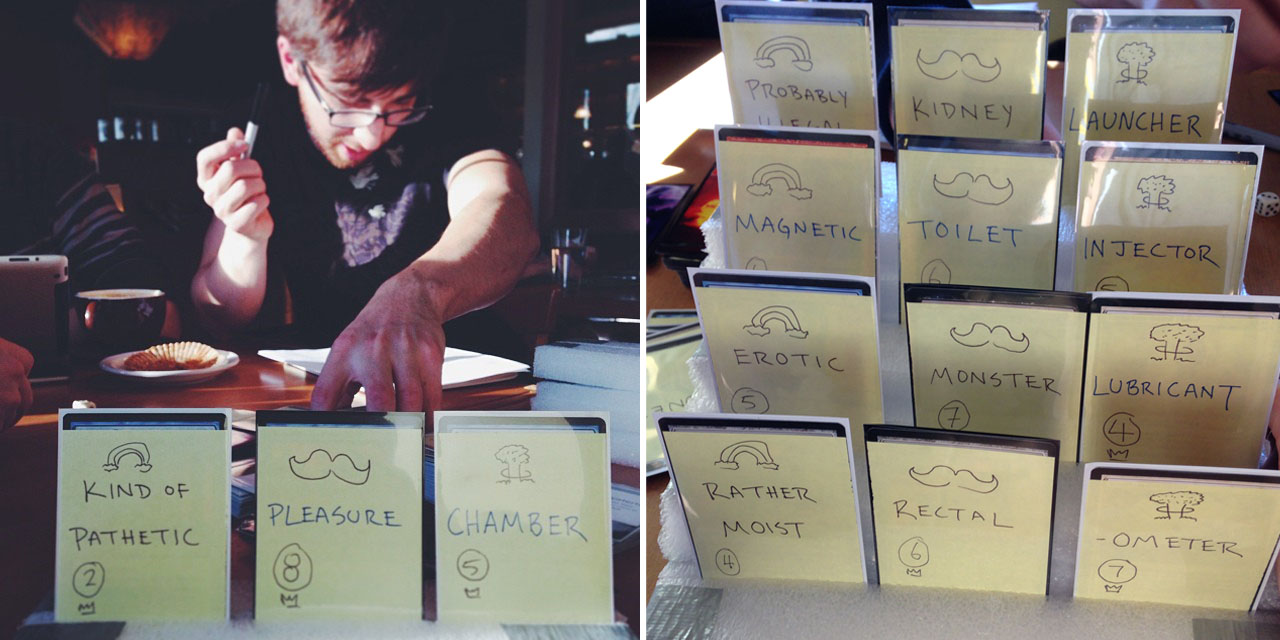 KIND OF
PATHETIC
2
PLEASURE
8
CHAMBER
5
PROBABLY
ILLEGAL
KIDNEY
LAUNCHER
MAGNETIC
TOILET
6
INJECTOR
EROTIC
5
MONSTER
7
LUBRICANT
4
RATHER
MOIST
4
RECTAL
6
-OMETER
7